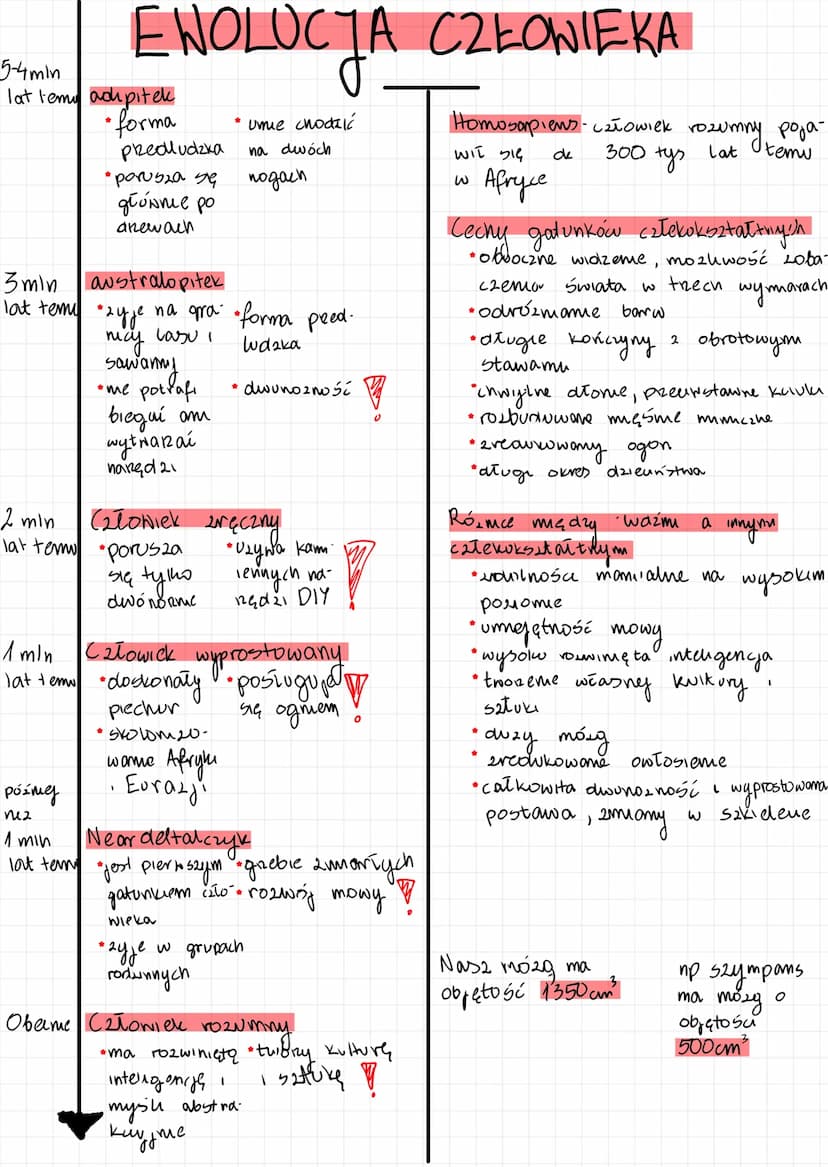 EWOLUCJA CZŁOWIEKA
5-4mln
lat temu
adipitek
• forma
przedludzka
• porusza się
głównie po
drzewach
• umie chodzić
na dwóch
nogach
3 mln
lat temu
australopitek
• żyje na gra-
nicy lasu i
sawanny
• nie potrafi
biegać ani
wytwarzać
narzędzi
• forma przed-
ludzka
• dwunożność !
2 mln
lat temu
Człowiek zręczny
• porusza
się tylko
dwónożnie
• Używa kam-
iennych na-
rzędzi DIY !
1 mln
lat temu
Człowiek wyprostowany
• doskonały
piechur
• skolonizo-
wanie Afryki
i Eurazji
• posługuje
się ogniem !
później
niż
1 mln
lat temu
Neandeltalczyk
• jest pierwszym
gatunkiem czło-
wieka
• żyje w grupach
rodzinnych
• grzebie zmarłych
• rozwój mowy !
Obecnie
Człowiek rozumny
• ma rozwiniętą
inteligencję i
myśli abstra-
kcyjnie
• tworzy kulturę
i sztukę !
Homosapiens - człowiek rozumny poja-
wił się ok 300 tys lat temu
w Afryce
Cechy gatunków człekokształtnych
• obuoczne widzenie, możliwość zoba-
czenia świata w trzech wymiarach
• odróżnianie barw
• długie kończyny z obrotowym
stawami
• chwytne dłonie, przeciwstawne kciuki
• rozbudowane mięśnie mimiczne
• zredukowany ogon
• długi okres dzieciństwa
Różnice między ludźmi a innymi
człekokształtnym
• zdolności manualne na wysokim
poziomie
• umiejętność mowy
• wysoko rozwinięta inteligencja
• tworzenie własnej kultury i
sztuki
• duży mózg
• zredukowane owłosienie
• całkowita dwunożność i wyprostowana
postawa, zmiany w szkielecie
Nasz mózg ma
objętość 1350 cm³
np szympans
ma mózg o
objętości
500cm³